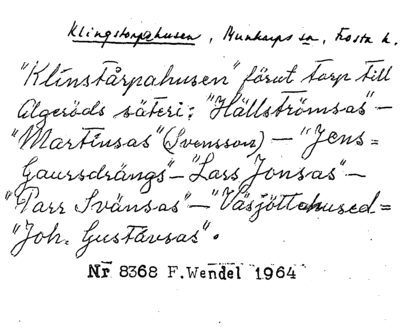 Klingstorpahusen, Munkarps sn, Frosta h.
"Klinstårpahusen" förut torp till
Algeröds säteri: "Hällströmsas" –
"Martinsas" (Svensson) – "Jens=
Gaursdrängs" – "Lars Jonsas" –
"Parr Svänsas" – "Väsjöttahused =
"Joh. Gustavsas".
Nr 8368 F. Wendel 1964